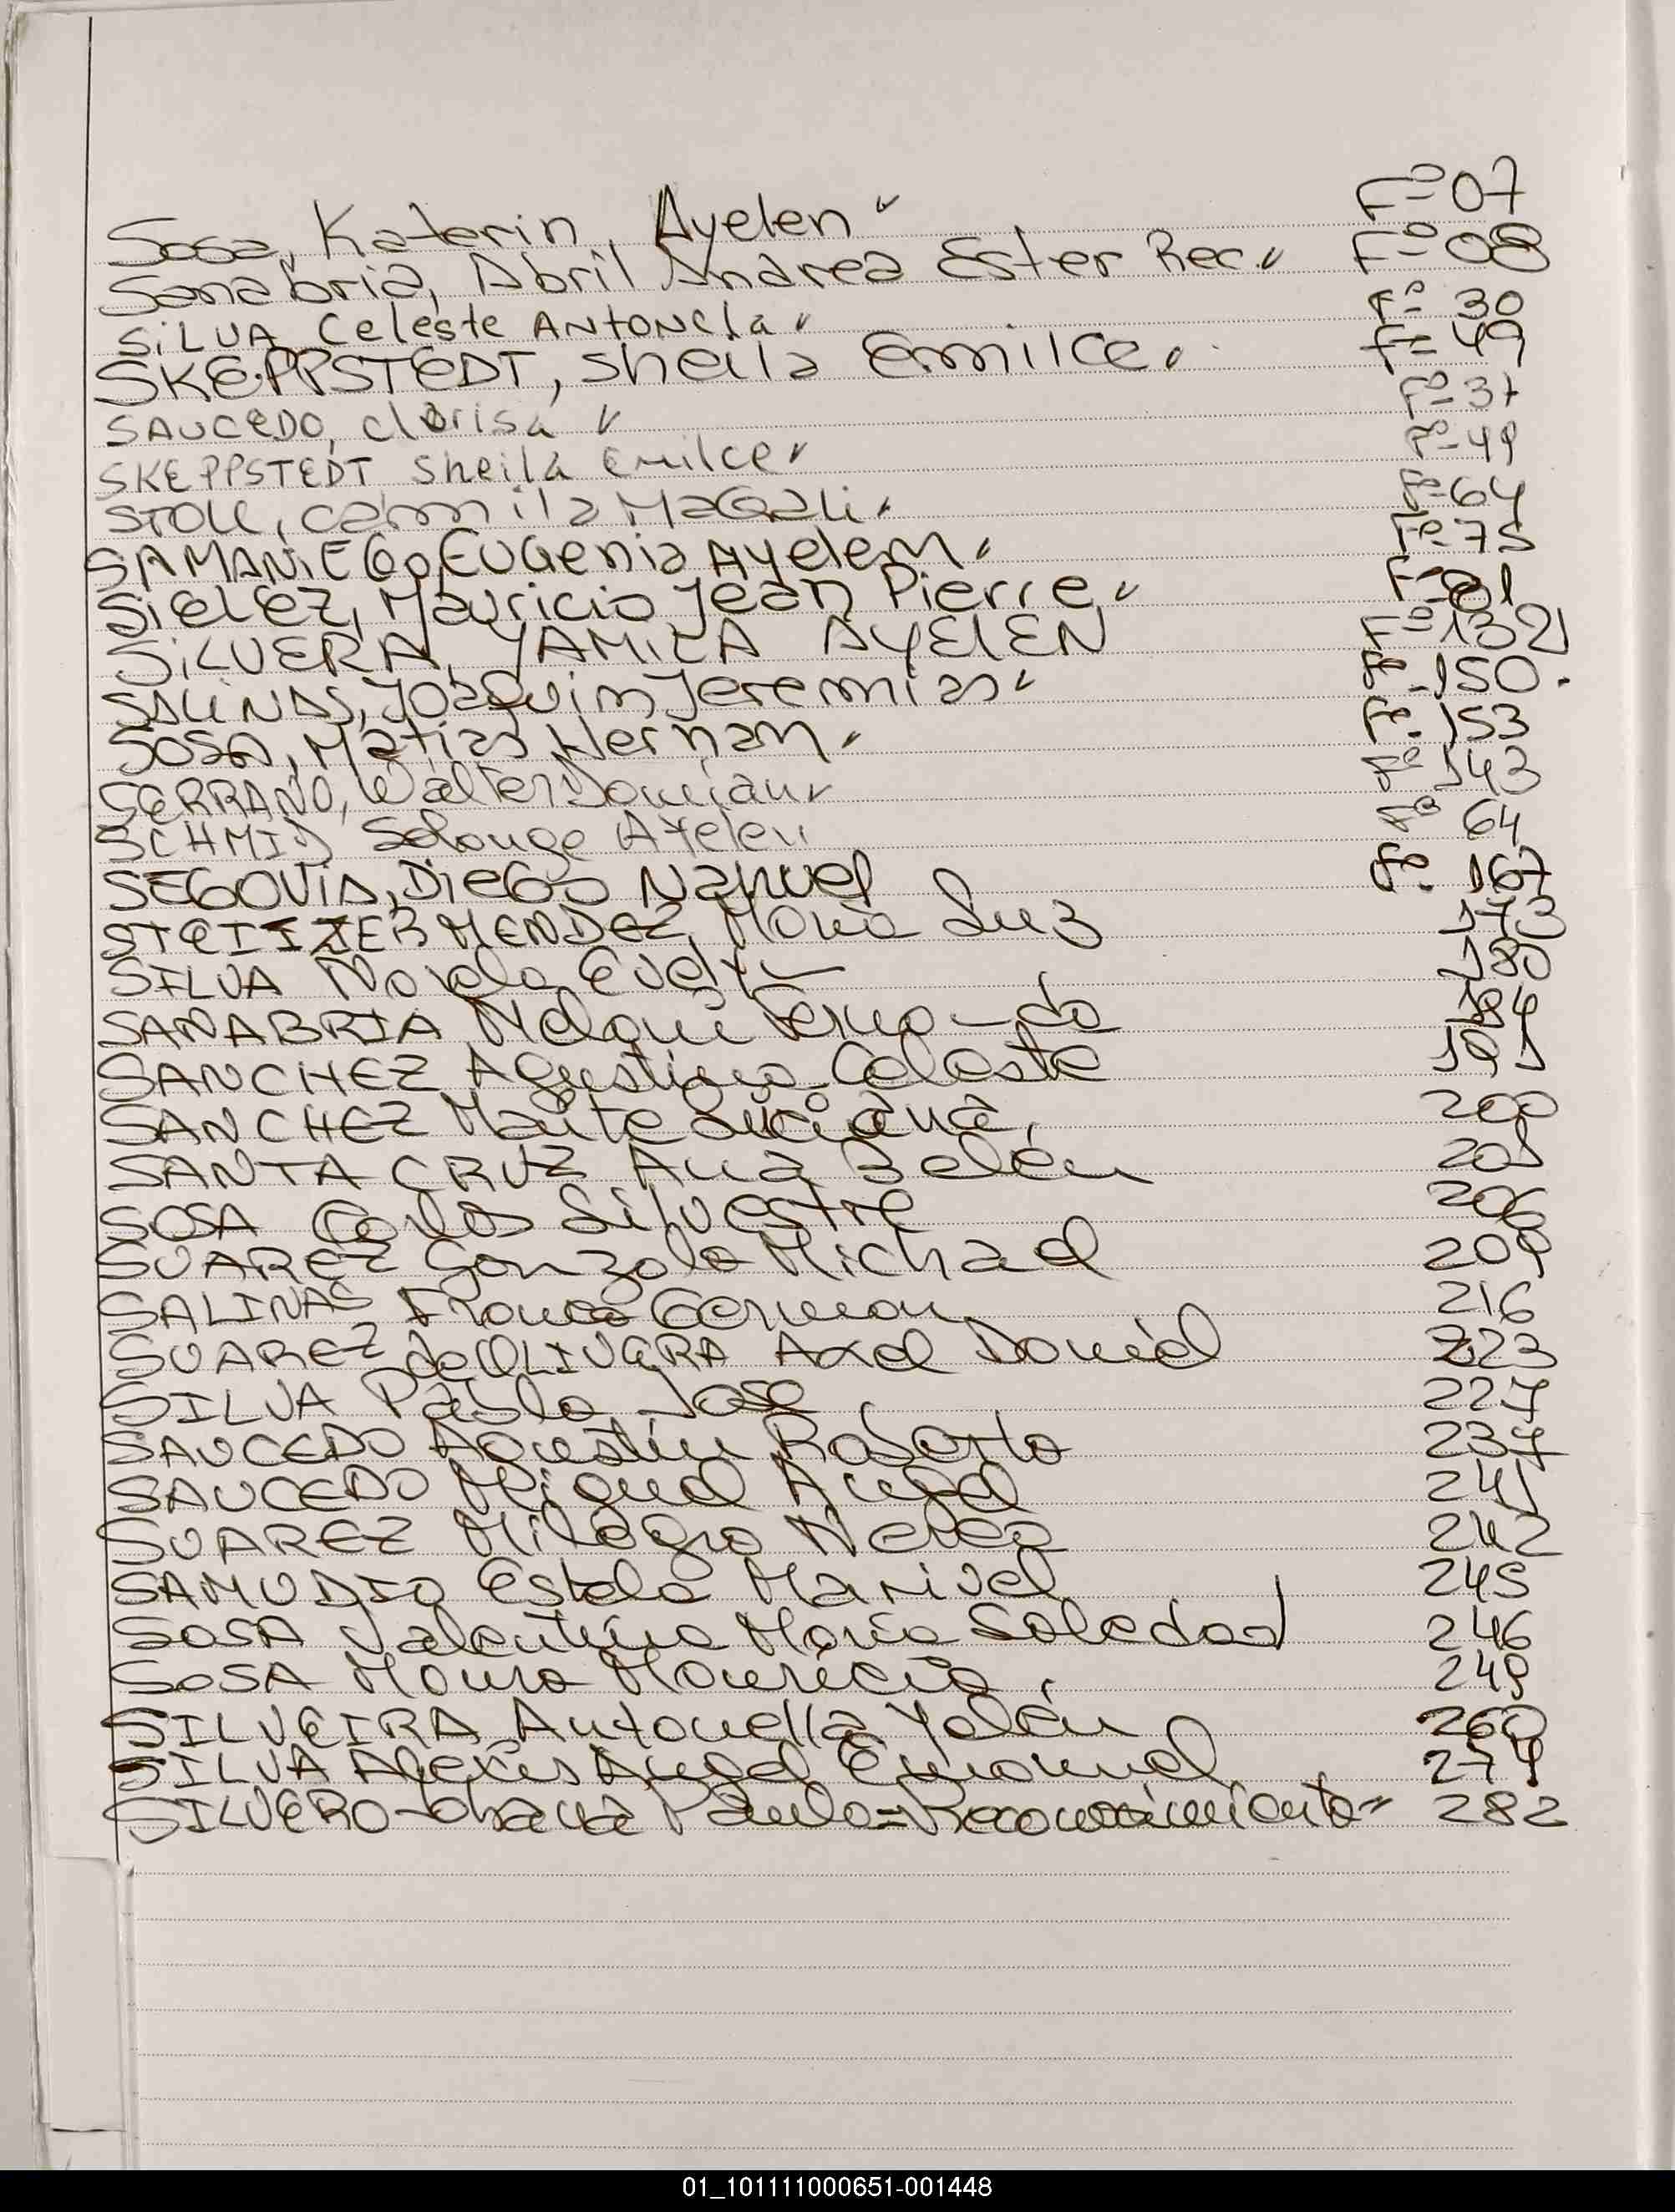 Sosa, Katerin, Ayelen F° 07
Sanabria, Abril Andrea Ester Rec. F° 08
SiLVA Celeste ANtONela F° 30
SKEPPSTEDT, Sheila Emilce. F° 49
SAUCEDO, Clarisa F° 37
SKEPPSTEDT Sheila Emilce F° 49
STOLL, Camila MaGali. F° 64
SAMANiEGO, EUGenia Ayelem. F° 75
SieleZ, Mauricio Jean Pierre, F°
SiLVERA, YAMILA AYELEN F° 132
SALiNAS, JOaquim Jeremias F°. 150.
SOSA, Matias Hernam. F°. 153
SERRANO, Walter Damian F° 143
SCHMID Solange Ayelen F° 64
SEGOViA, DieGo Nahuel F°. 167
MENDEZ, María Luz 173
SILVA Noralo Evelyn 180
SANABRIA Fernando 184
SANCHEZ Agustina Celeste 191
SANCHEZ Maite Luciana 200
SANTA CRUZ Ana Belén 201
SOSA Carlos Silvestre 206
SUAREZ Gonzalo Michael 209
SALINAS Franco German 216
SUAREZ de OLIVERA Axel Daniel 223
SILVA Pablo José 227
SAUCEDO Agustín Roberto 237
SAUCEDO Miguel Angel 241
SUAREZ Milagro Nerea 242
SAMUDIO Estela Marisel 245
SOSA Valentina María Soledad 246
SOSA Mauro Mauricio 249
SILVEIRA Antonella Yalén 260
SILVA Alexis Angel Emanuel 274
SILVERO Ohana Paula = Reconocimiento 282
01_101111000651-001448